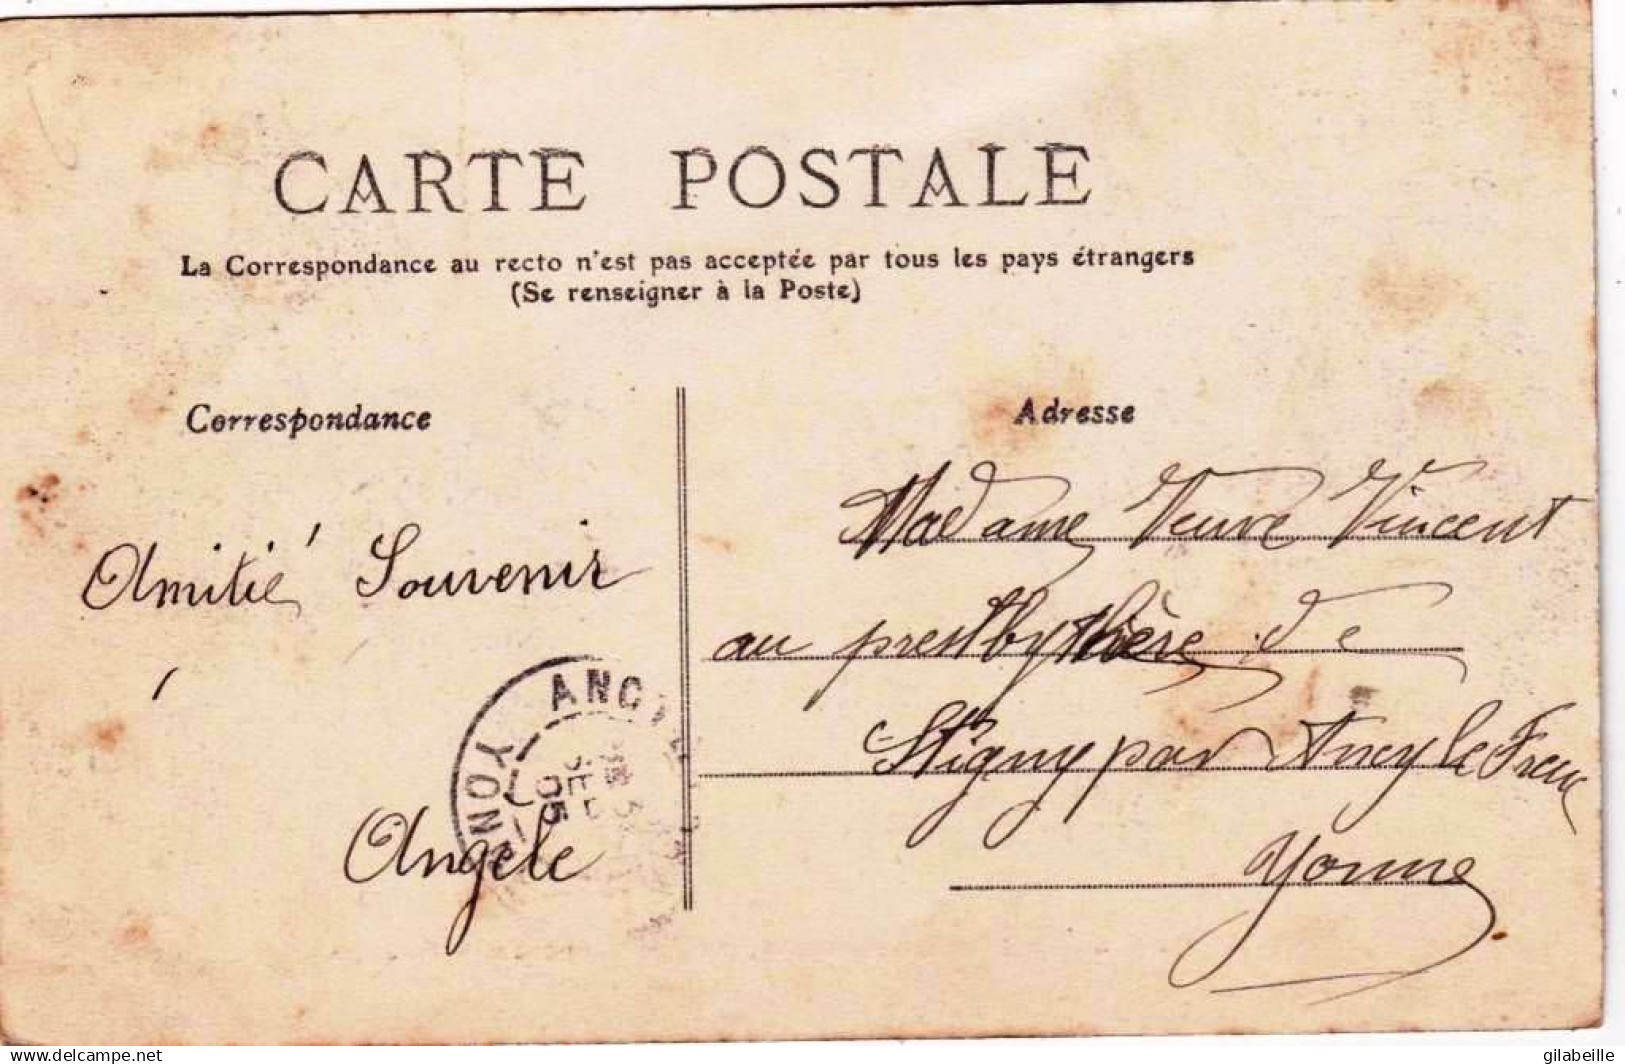 CARTE POSTALE
La Correspondance au recto n'est pas acceptée par tous les pays étrangers
(Se renseigner à la Poste)
Correspondance
Amitié Souvenir
Angele
ANCY
YONNE
05
Adresse
Madame Veuve Vincent
au presbythère de
Stigny par Ancy le Franc
Yonne
Delcampe.net
gilabeille